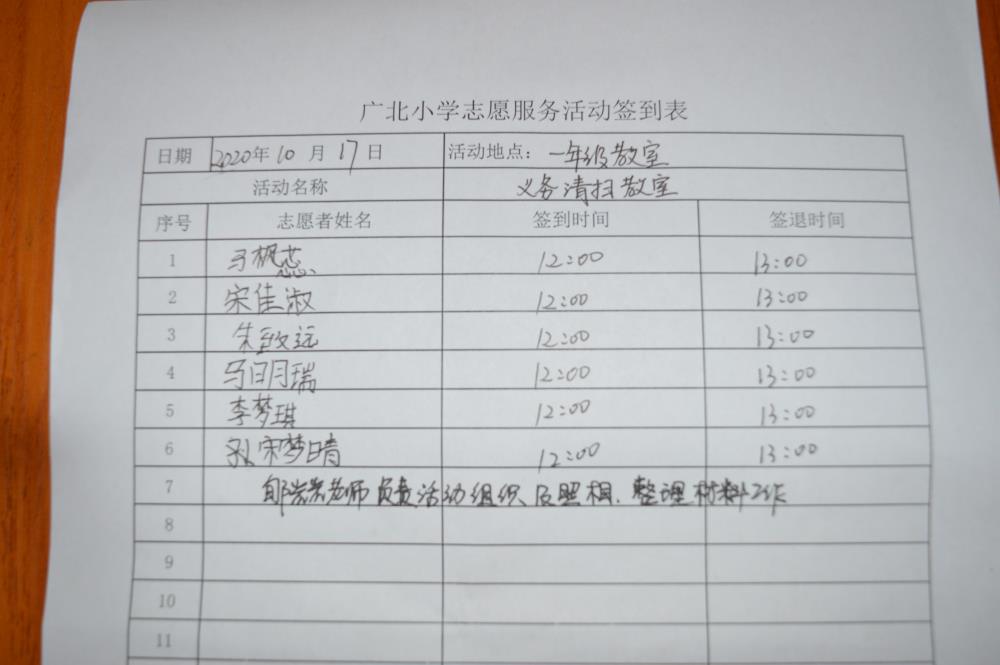 广北小学志愿服务活动签到表
日期 2020年 10 月 17 日 活动地点： 一年级教室
活动名称 义务清扫教室
序号 志愿者姓名 签到时间 签退时间
1 马枫蕊 12:00 13:00
2 宋佳淑 12:00 13:00
3 朱致远 12:00 13:00
4 马明瑞 12:00 13:00
5 李梦琪 12:00 13:00
6 孙宋梦晴 12:00 13:00
7 老师负责活动组织及照相、整理材料工作
8
9
10
11